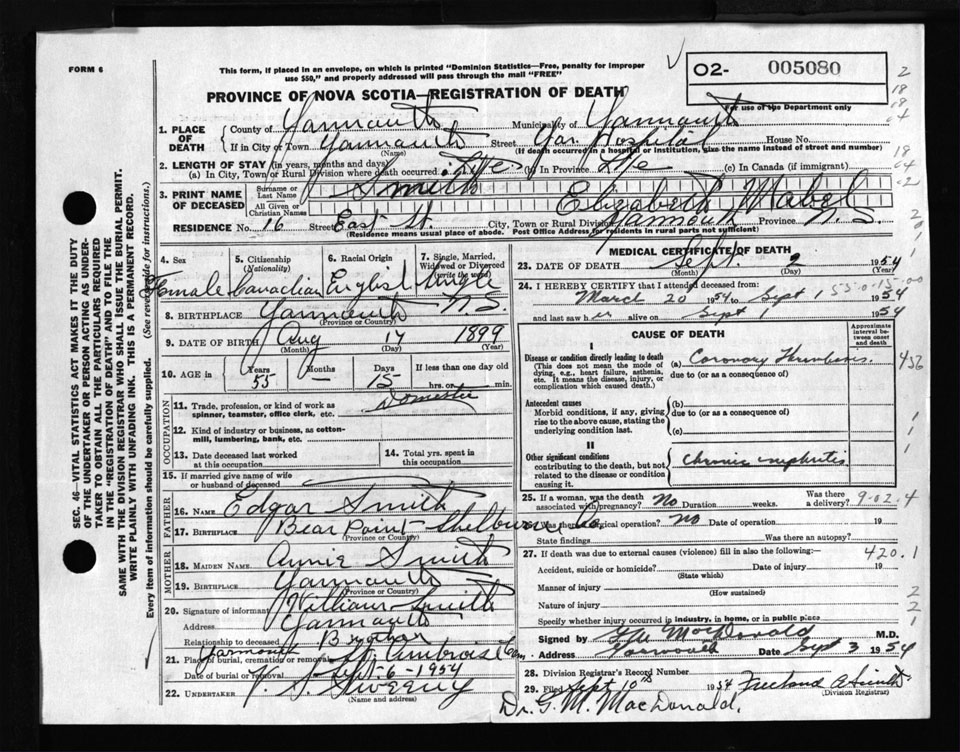 FORM 6
This form, if placed in an envelope, on which is printed "Dominion Statistics—Free, penalty for improper
use $50," and properly addressed will pass through the mail "FREE"
O2- 005080
For use of the Department only
PROVINCE OF NOVA SCOTIA—REGISTRATION OF DEATH
1. PLACE OF DEATH { County of Yarmouth Municipality of Yarmouth
If in City or Town Yarmouth (Name) Street Yar Hospital House No.
(If death occurred in a hospital or institution, give the name instead of street and number)
2. LENGTH OF STAY (in years, months and days)
(a) In City, Town or Rural Division where death occurred Life (b) In Province Life (c) In Canada (if immigrant)
3. PRINT NAME OF DECEASED { Surname or Last Name Smith
All Given or Christian Names Elizabeth Mabel
RESIDENCE No. 16 Street East St. City, Town or Rural Division Yarmouth Province N.S.
(Residence means usual place of abode. Post Office Address for residents in rural parts not sufficient)
4. Sex 5. Citizenship (Nationality) 6. Racial Origin 7. Single, Married, Widowed or Divorced (write the word)
Female Canadian English Single
8. BIRTHPLACE Yarmouth N.S.
(Province or Country)
9. DATE OF BIRTH Aug 17 1899
(Month) (Day) (Year)
10. AGE in { Years 55 Months — Days 15 If less than one day old hrs. or min.
OCCUPATION
11. Trade, profession, or kind of work as spinner, teamster, office clerk, etc. Domestic
12. Kind of industry or business, as cotton-mill, lumbering, bank, etc.
13. Date deceased last worked at this occupation
14. Total yrs. spent in this occupation
15. If married give name of wife or husband of deceased
FATHER
16. NAME Edgar Smith
17. BIRTHPLACE Bear Point Shelburne Co.
(Province or Country)
MOTHER
18. MAIDEN NAME Annie Smith
19. BIRTHPLACE Yarmouth
(Province or Country)
20. Signature of informant William Smith
Address Yarmouth
Relationship to deceased Brother
21. Place of burial, cremation or removal Yarmouth St. Ambrose Cem
Date of burial or removal Sept-6-1954
22. UNDERTAKER V. S. Sweeny
(Name and address)
MEDICAL CERTIFICATE OF DEATH
23. DATE OF DEATH Sept. 2 1954
(Month) (Day) (Year)
24. I HEREBY CERTIFY that I attended deceased from:
March 20 1954 to Sept 1 1954
and last saw her alive on Sept 1 1954
CAUSE OF DEATH
Approximate interval between onset and death
I
Disease or condition directly leading to death
(This does not mean the mode of dying, e.g., heart failure, asthenia, etc. It means the disease, injury, or complication which caused death.)
(a) Coronary Thrombosis
due to (or as a consequence of)
Antecedent causes
Morbid conditions, if any, giving rise to the above cause, stating the underlying condition last.
(b)
due to (or as a consequence of)
(c)
II
Other significant conditions
contributing to the death, but not related to the disease or condition causing it.
Chronic nephritis
25. If a woman, was the death associated with pregnancy? No Duration weeks. Was there a delivery?
9-02.4
26. Was there a surgical operation? No Date of operation 19
State findings Was there an autopsy?
27. If death was due to external causes (violence) fill in also the following:— 420.1
Accident, suicide or homicide? (State which) Date of injury 19
Manner of injury
(How sustained)
Nature of injury
Specify whether injury occurred in industry, in home, or in public place
Signed by G M MacDonald M.D.
Address Yarmouth Date Sept 3 1954
28. Division Registrar's Record Number
29. Filed Sept 10th 1954
(Division Registrar)
Dr. G. M. MacDonald.
SEC. 46—VITAL STATISTICS ACT MAKES IT THE DUTY
OF THE UNDERTAKER OR PERSON ACTING AS UNDER-
TAKER TO OBTAIN ALL THE PARTICULARS REQUIRED
IN THE "REGISTRATION OF DEATH" AND TO FILE THE
SAME WITH THE DIVISION REGISTRAR WHO SHALL ISSUE THE BURIAL PERMIT.
WRITE PLAINLY WITH UNFADING INK. THIS IS A PERMANENT RECORD.
Every item of information should be carefully supplied. (See reverse side for instructions.)